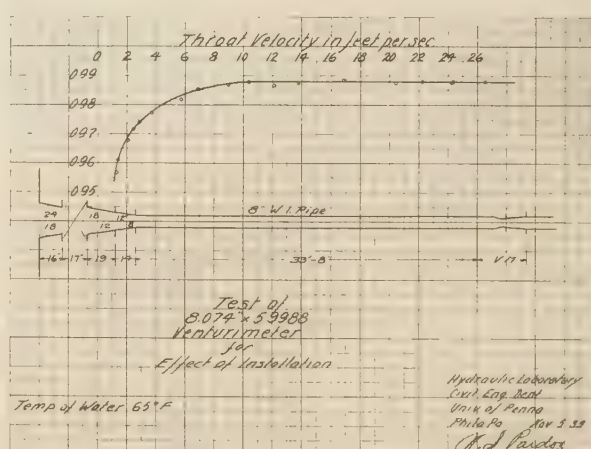 Throat Velocity in feet per sec
0 2 4 6 8 10 12 14 16 18 20 22 24 26
0.99
0.98
0.97
0.96
0.95
24 18 12 8" W.I. Pipe
18 12 8
16 17 19 17 33'-8" V M
Test of
8.074" x 5.9988
Venturimeter
for
Effect of Installation
Temp of Water 65° F
Hydraulic Laboratory
Civil Eng. Dept
Univ of Penna
Phila Pa Nov 5 33
W. S. Pardoe